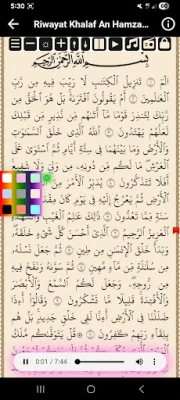 5:30
Riwayat Khalaf An Hamza...
بِسْمِ ٱللَّهِ ٱلرَّحْمَٰنِ ٱلرَّحِيمِ
الٓمٓ تَنزِيلُ ٱلْكِتَٰبِ لَا رَيْبَ فِيهِ مِن رَّبِّ
ٱلْعَٰلَمِينَ أَمْ يَقُولُونَ ٱفْتَرَىٰهُ بَلْ هُوَ ٱلْحَقُّ مِن
رَّبِّكَ لِتُنذِرَ قَوْمًا مَّآ أَتَىٰهُم مِّن نَّذِيرٍ مِّن قَبْلِكَ
لَعَلَّهُمْ يَهْتَدُونَ ٱللَّهُ ٱلَّذِى خَلَقَ ٱلسَّمَٰوَٰتِ
وَٱلْأَرْضَ وَمَا بَيْنَهُمَا فِى سِتَّةِ أَيَّامٍ ثُمَّ ٱسْتَوَىٰ عَلَى
ٱلْعَرْشِ مَا لَكُم مِّن دُونِهِۦ مِن وَلِىٍّ وَلَا شَفِيعٍ
أَفَلَا تَتَذَكَّرُونَ يُدَبِّرُ ٱلْأَمْرَ مِنَ
ٱلْأَرْضِ ثُمَّ يَعْرُجُ إِلَيْهِ فِى يَوْمٍ كَانَ
سَنَةٍ مِّمَّا تَعُدُّونَ ذَٰلِكَ عَٰلِمُ ٱلْغَيْبِ
ٱلْعَزِيزُ ٱلرَّحِيمُ ٱلَّذِىٓ أَحْسَنَ كُلَّ شَىْءٍ خَلَقَهُۥ
وَبَدَأَ خَلْقَ ٱلْإِنسَٰنِ مِن طِينٍ ثُمَّ جَعَلَ نَسْلَهُۥ
مِن سُلَٰلَةٍ مِّن مَّآءٍ مَّهِينٍ ثُمَّ سَوَّىٰهُ وَنَفَخَ فِيهِ
مِن رُّوحِهِۦ وَجَعَلَ لَكُمُ ٱلسَّمْعَ وَٱلْأَبْصَٰرَ
وَٱلْأَفْـِٔدَةَ قَلِيلًا مَّا تَشْكُرُونَ وَقَالُوٓا۟ أَءِذَا
ضَلَلْنَا فِى ٱلْأَرْضِ أَءِنَّا لَفِى خَلْقٍ جَدِيدٍ بَلْ هُم
بِلِقَآءِ رَبِّهِمْ كَٰفِرُونَ قُلْ يَتَوَفَّىٰكُم مَّلَكُ
0:01 / 7:44